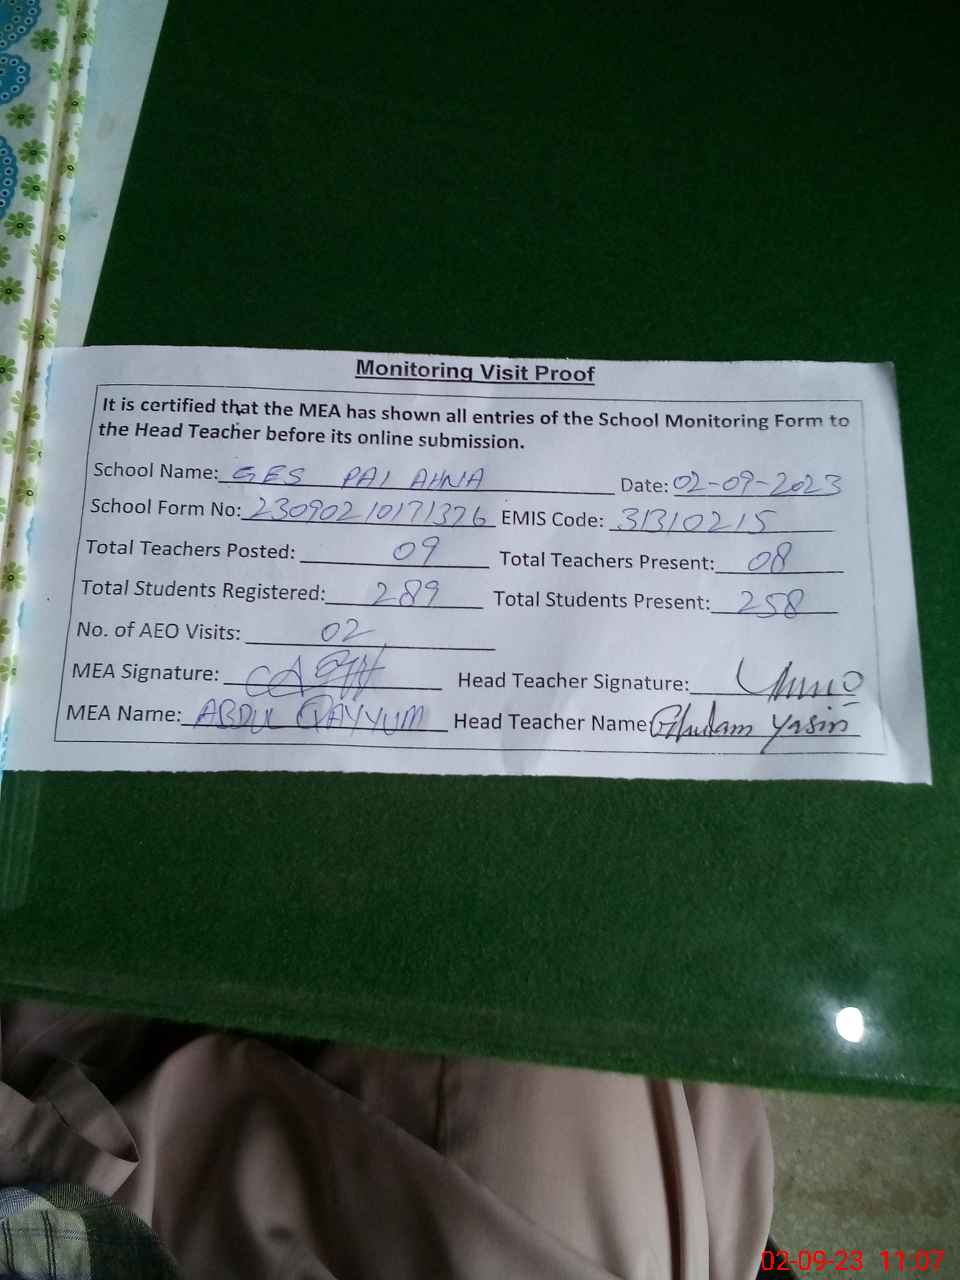 Monitoring Visit Proof
It is certified that the MEA has shown all entries of the School Monitoring Form to
the Head Teacher before its online submission.
School Name: GES PAI AHNA Date: 02-09-2023
School Form No: 23090210171376 EMIS Code: 31310215
Total Teachers Posted: 09 Total Teachers Present: 08
Total Students Registered: 289 Total Students Present: 258
No. of AEO Visits: 02
MEA Signature: Head Teacher Signature:
MEA Name: ABDUL QAYYUM Head Teacher Name Ghulam Yasin
02-09-23 11:07